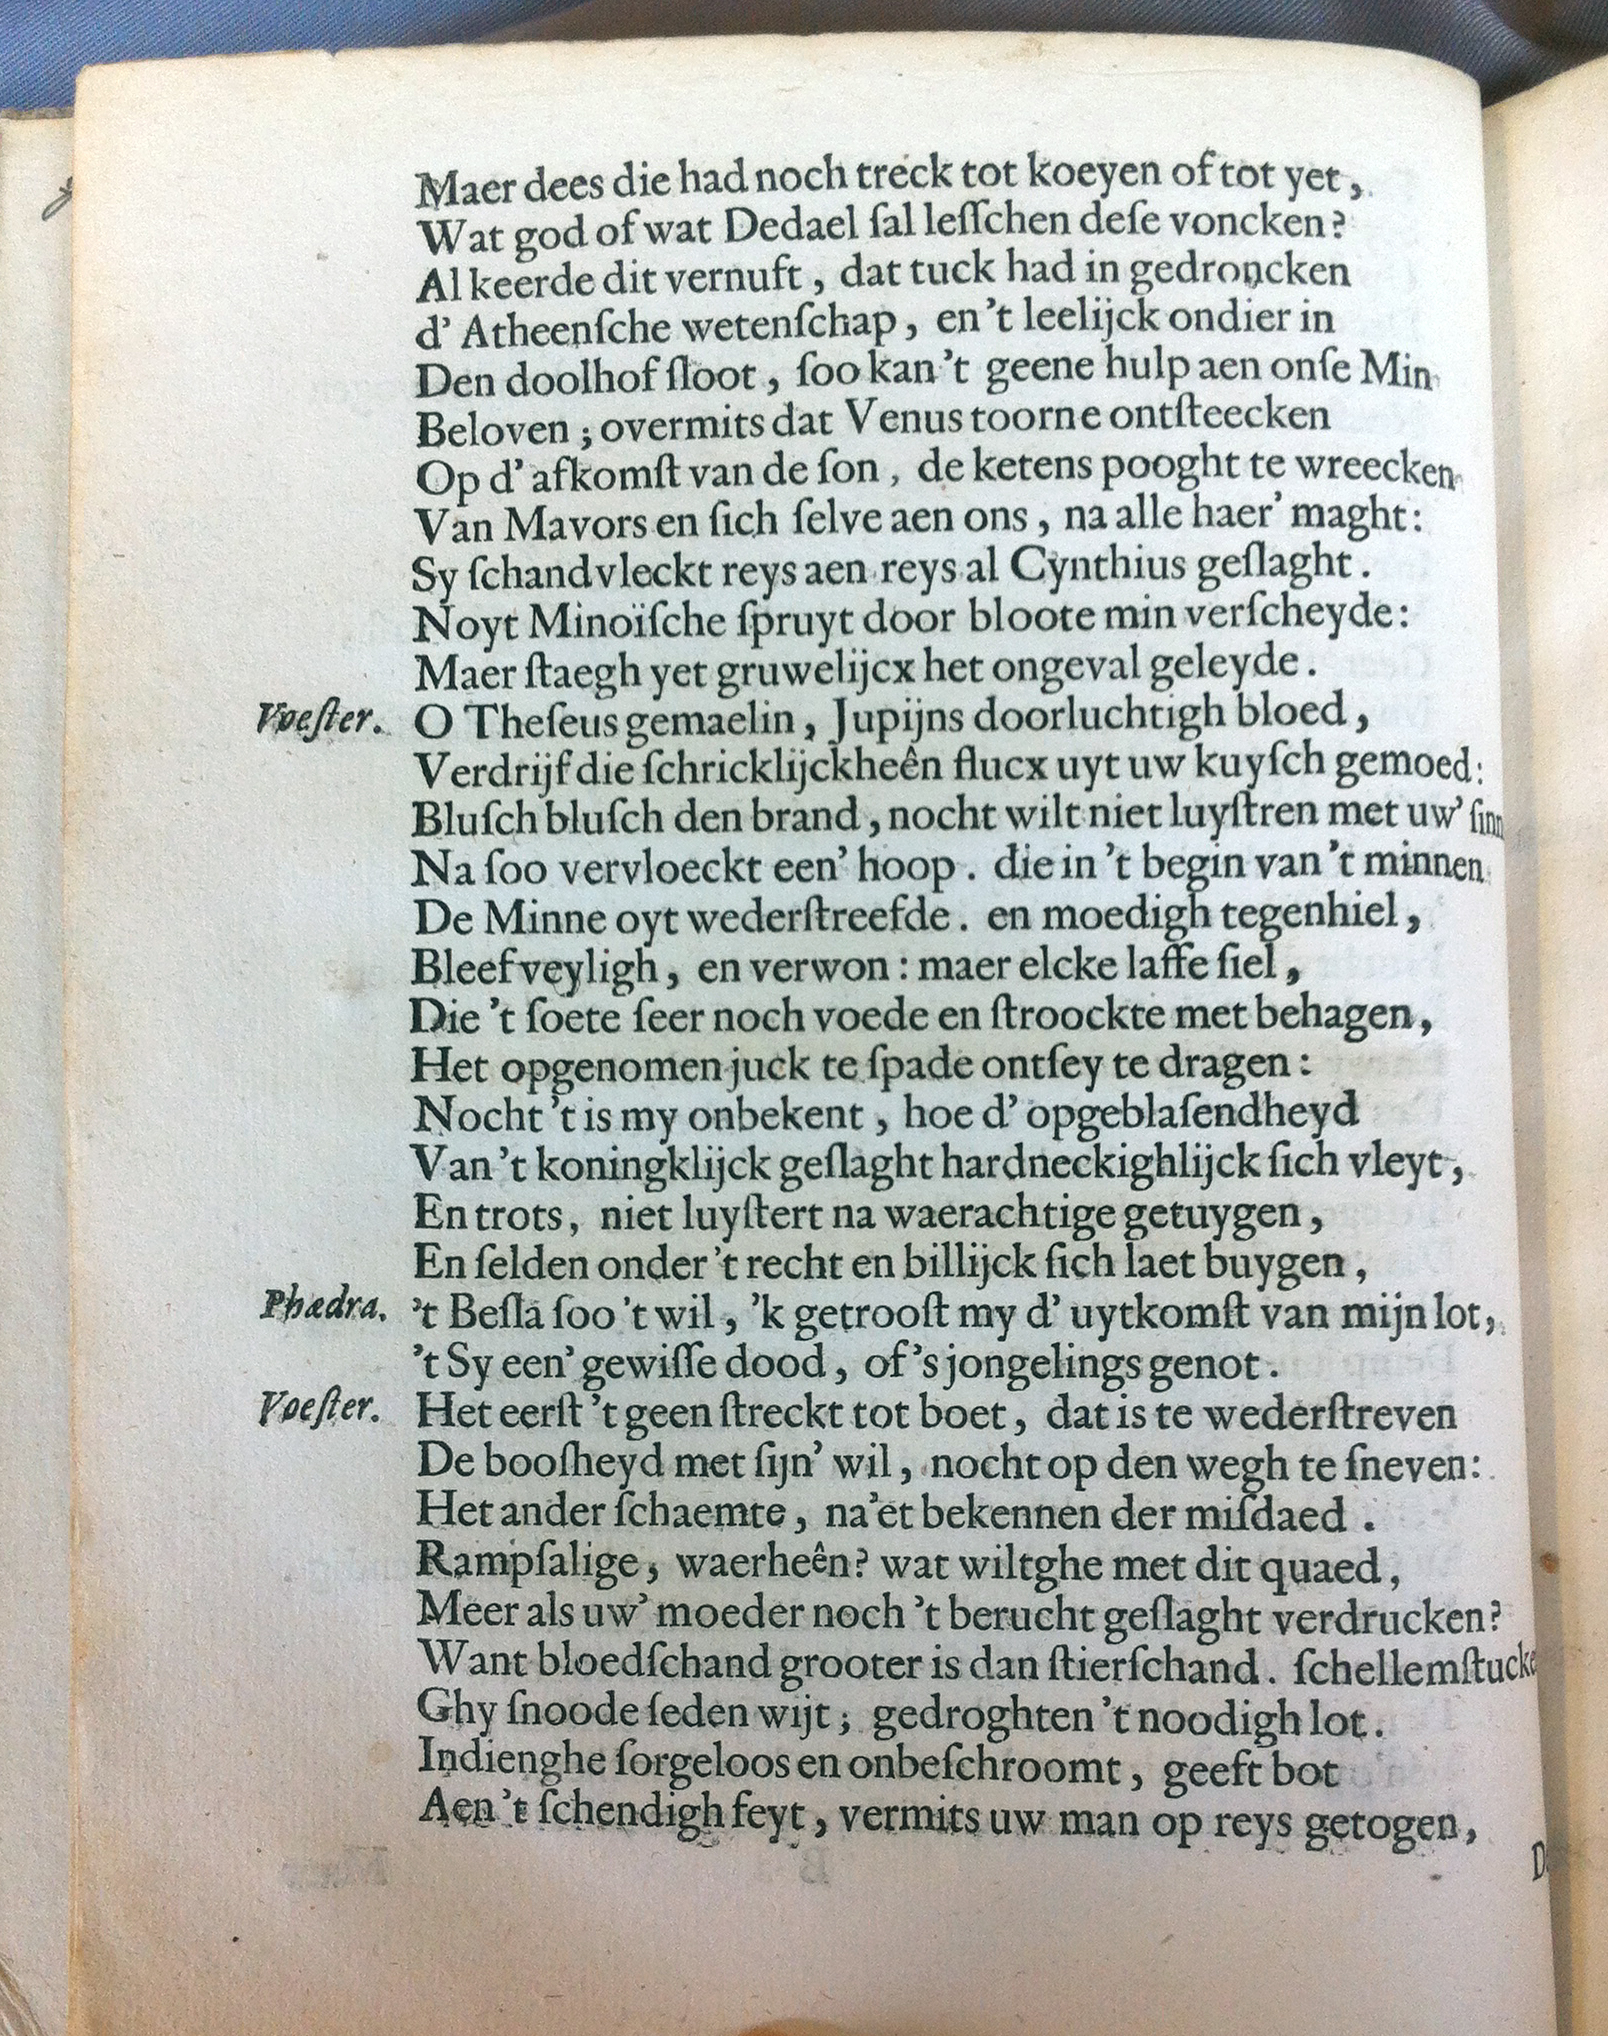 Maer dees die had noch treck tot koeyen of tot yet,
Wat god of wat Dedael ſal leſſchen deſe voncken?
Al keerde dit vernuft, dat tuck had in gedroncken
d' Atheenſche wetenſchap, en 't leelijck ondier in
Den doolhof ſloot, ſoo kan 't geene hulp aen onſe Min
Beloven; overmits dat Venus toorne ontſteecken
Op d' afkomſt van de ſon, de ketens pooght te wreecken
Van Mavors en ſich ſelve aen ons, na alle haer' maght:
Sy ſchandvleckt reys aen reys al Cynthius geſlaght.
Noyt Minoïſche ſpruyt door bloote min verſcheyde:
Maer ſtaegh yet gruwelijcx het ongeval geleyde.
Voeſter. O Theſeus gemaelin, Jupijns doorluchtigh bloed,
Verdrijf die ſchricklijckheên flucx uyt uw kuyſch gemoed:
Bluſch bluſch den brand, nocht wilt niet luyſtren met uw'
Na ſoo vervloeckt een' hoop. die in 't begin van 't minnen
De Minne oyt wederſtreefde. en moedigh tegenhiel,
Bleef veyligh, en verwon: maer elcke laffe ſiel,
Die 't ſoete ſeer noch voede en ſtroockte met behagen,
Het opgenomen juck te ſpade ontſey te dragen:
Nocht 't is my onbekent, hoe d' opgeblaſendheyd
Van 't koningklijck geſlaght hardneckighlijck ſich vleyt,
En trots, niet luyſtert na waerachtige getuygen,
En ſelden onder 't recht en billijck ſich laet buygen,
Phædra. 't Beſla ſoo 't wil, 'k getrooſt my d' uytkomſt van mijn lot,
't Sy een' gewiſſe dood, of 's jongelings genot.
Voeſter. Het eerſt 't geen ſtreckt tot boet, dat is te wederſtreven
De boosheyd met ſijn' wil, nocht op den wegh te ſneven:
Het ander ſchaemte, na'et bekennen der miſdaed.
Rampſalige, waerheên? wat wiltghe met dit quaed,
Meer als uw' moeder noch 't berucht geſlaght verdrucken?
Want bloedſchand grooter is dan ſtierſchand. ſchellemſtucke
Ghy ſnoode ſeden wijt; gedroghten 't noodigh lot.
Indienghe ſorgeloos en onbeſchroomt, geeft bot
Aen 't ſchendigh feyt, vermits uw man op reys getogen,